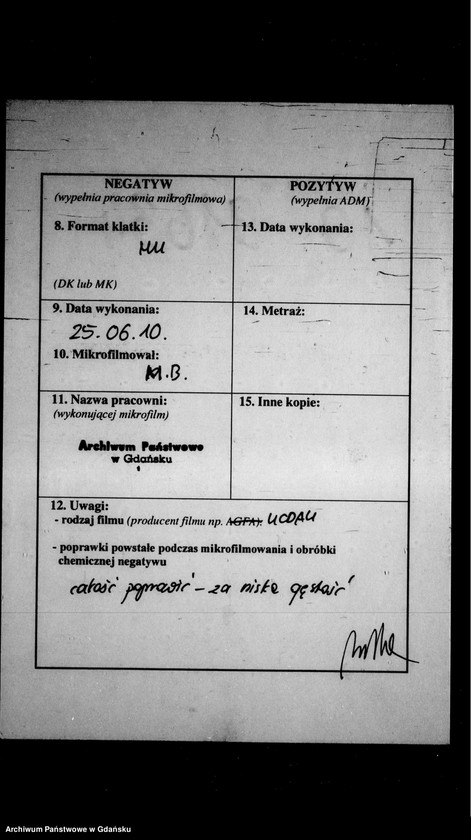 NEGATYW
(wypełnia pracownia mikrofilmowa)
8. Format klatki:
(DK lub MK)
9. Data wykonania:
25.06.10.
10. Mikrofilmował:
M.B.
11. Nazwa pracowni:
(wykonującej mikrofilm)
Archiwum Państwowe
w Gdańsku
POZYTYW
(wypełnia ADM)
13. Data wykonania:
14. Metraż:
15. Inne kopie:
12. Uwagi:
- rodzaj filmu (producent filmu np. AGFA):
- poprawki powstałe podczas mikrofilmowania i obróbki
chemicznej negatywu
całość poprawić - za niska gęstość
Archiwum Państwowe w Gdańsku